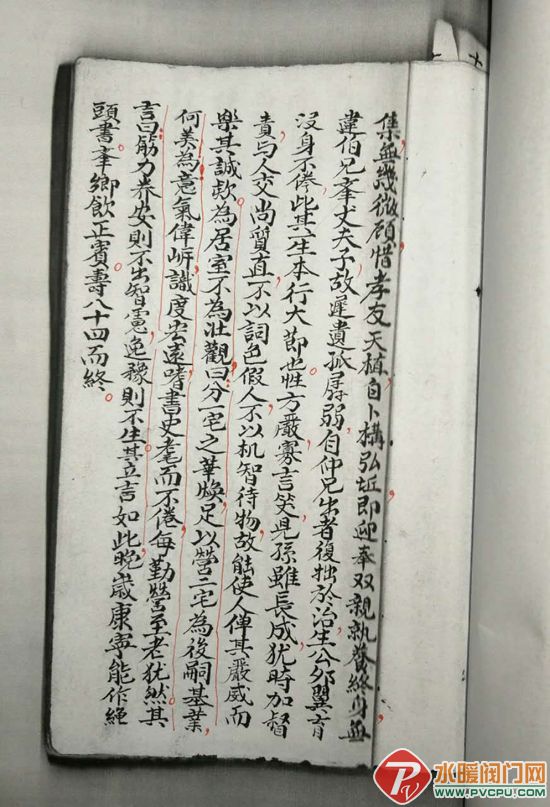 集無幾微顧惜孝友天植自卜構弘址即迎奉双親就養終身無
違伯兄峯丈夫子故遲遺孤孱弱自仲兄出者復拙於治生公卵翼育
沒身不倦此其生本行大節也性方嚴寡言笑児孫雖長成犹時加督
責与人交尚質直不以詞色假人不以机智待物故能使人憚其嚴威而
樂其誠欵為居室不為壯觀曰分一宅之華煥足以營二宅為後嗣基業
何美為意氣偉岸識度宏遠嗜書史耄而不倦每勤營至老犹然其
言曰筋力养安則不出智慮逸豫則不生其立言如此晚歳康寧能作絕
頭書奉鄉飲正賓壽八十四而終
水暖阀门网
WWW.PVCPU.COM